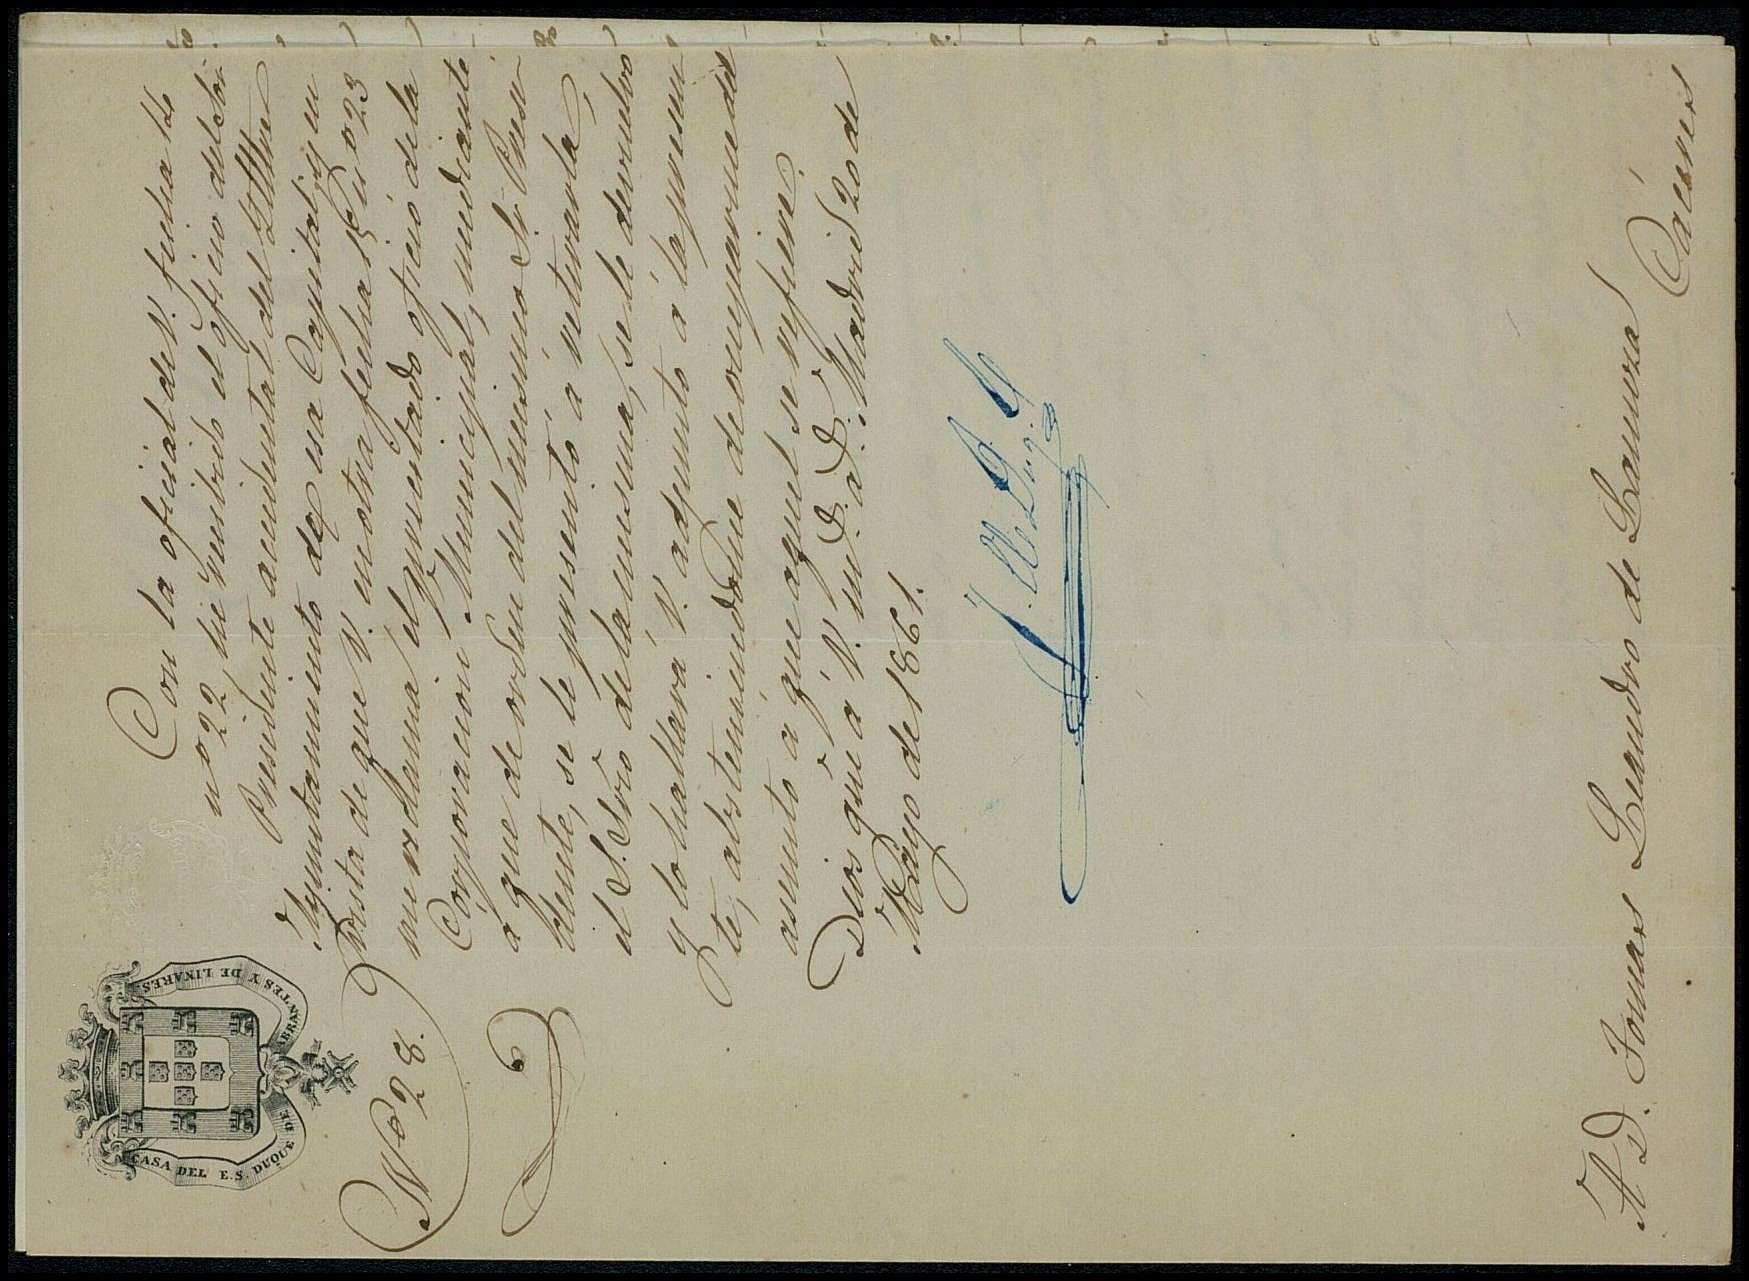 CASA DEL E.S. DUQUE DE ABRANTES Y DE LINARES
Nº 28.
Con la oficial de V. fecha 16
nº 22, he recibido el oficio del Sor.
Presidente accidental del Iltre
Ayuntamiento de esa Capital, y en
vista de que V. en otra fecha 15 nº 23
me reclama el espresado oficio de la
Corporacion Municipal, mediante
á que de orden del mesmo Sr. Presi-
dente, se le presentó á retirarla
el S. Srio de la mesma, se le devuelvo
y lo hallará V. adjunto á la presen-
te, absteniendome de ocuparme del
asunto á que aquel se refiere.
Dios gue á V. m. a. Madrid 20 de
Mayo de 1861.
A D. Tomas Leandro de Lanuza
Caceres